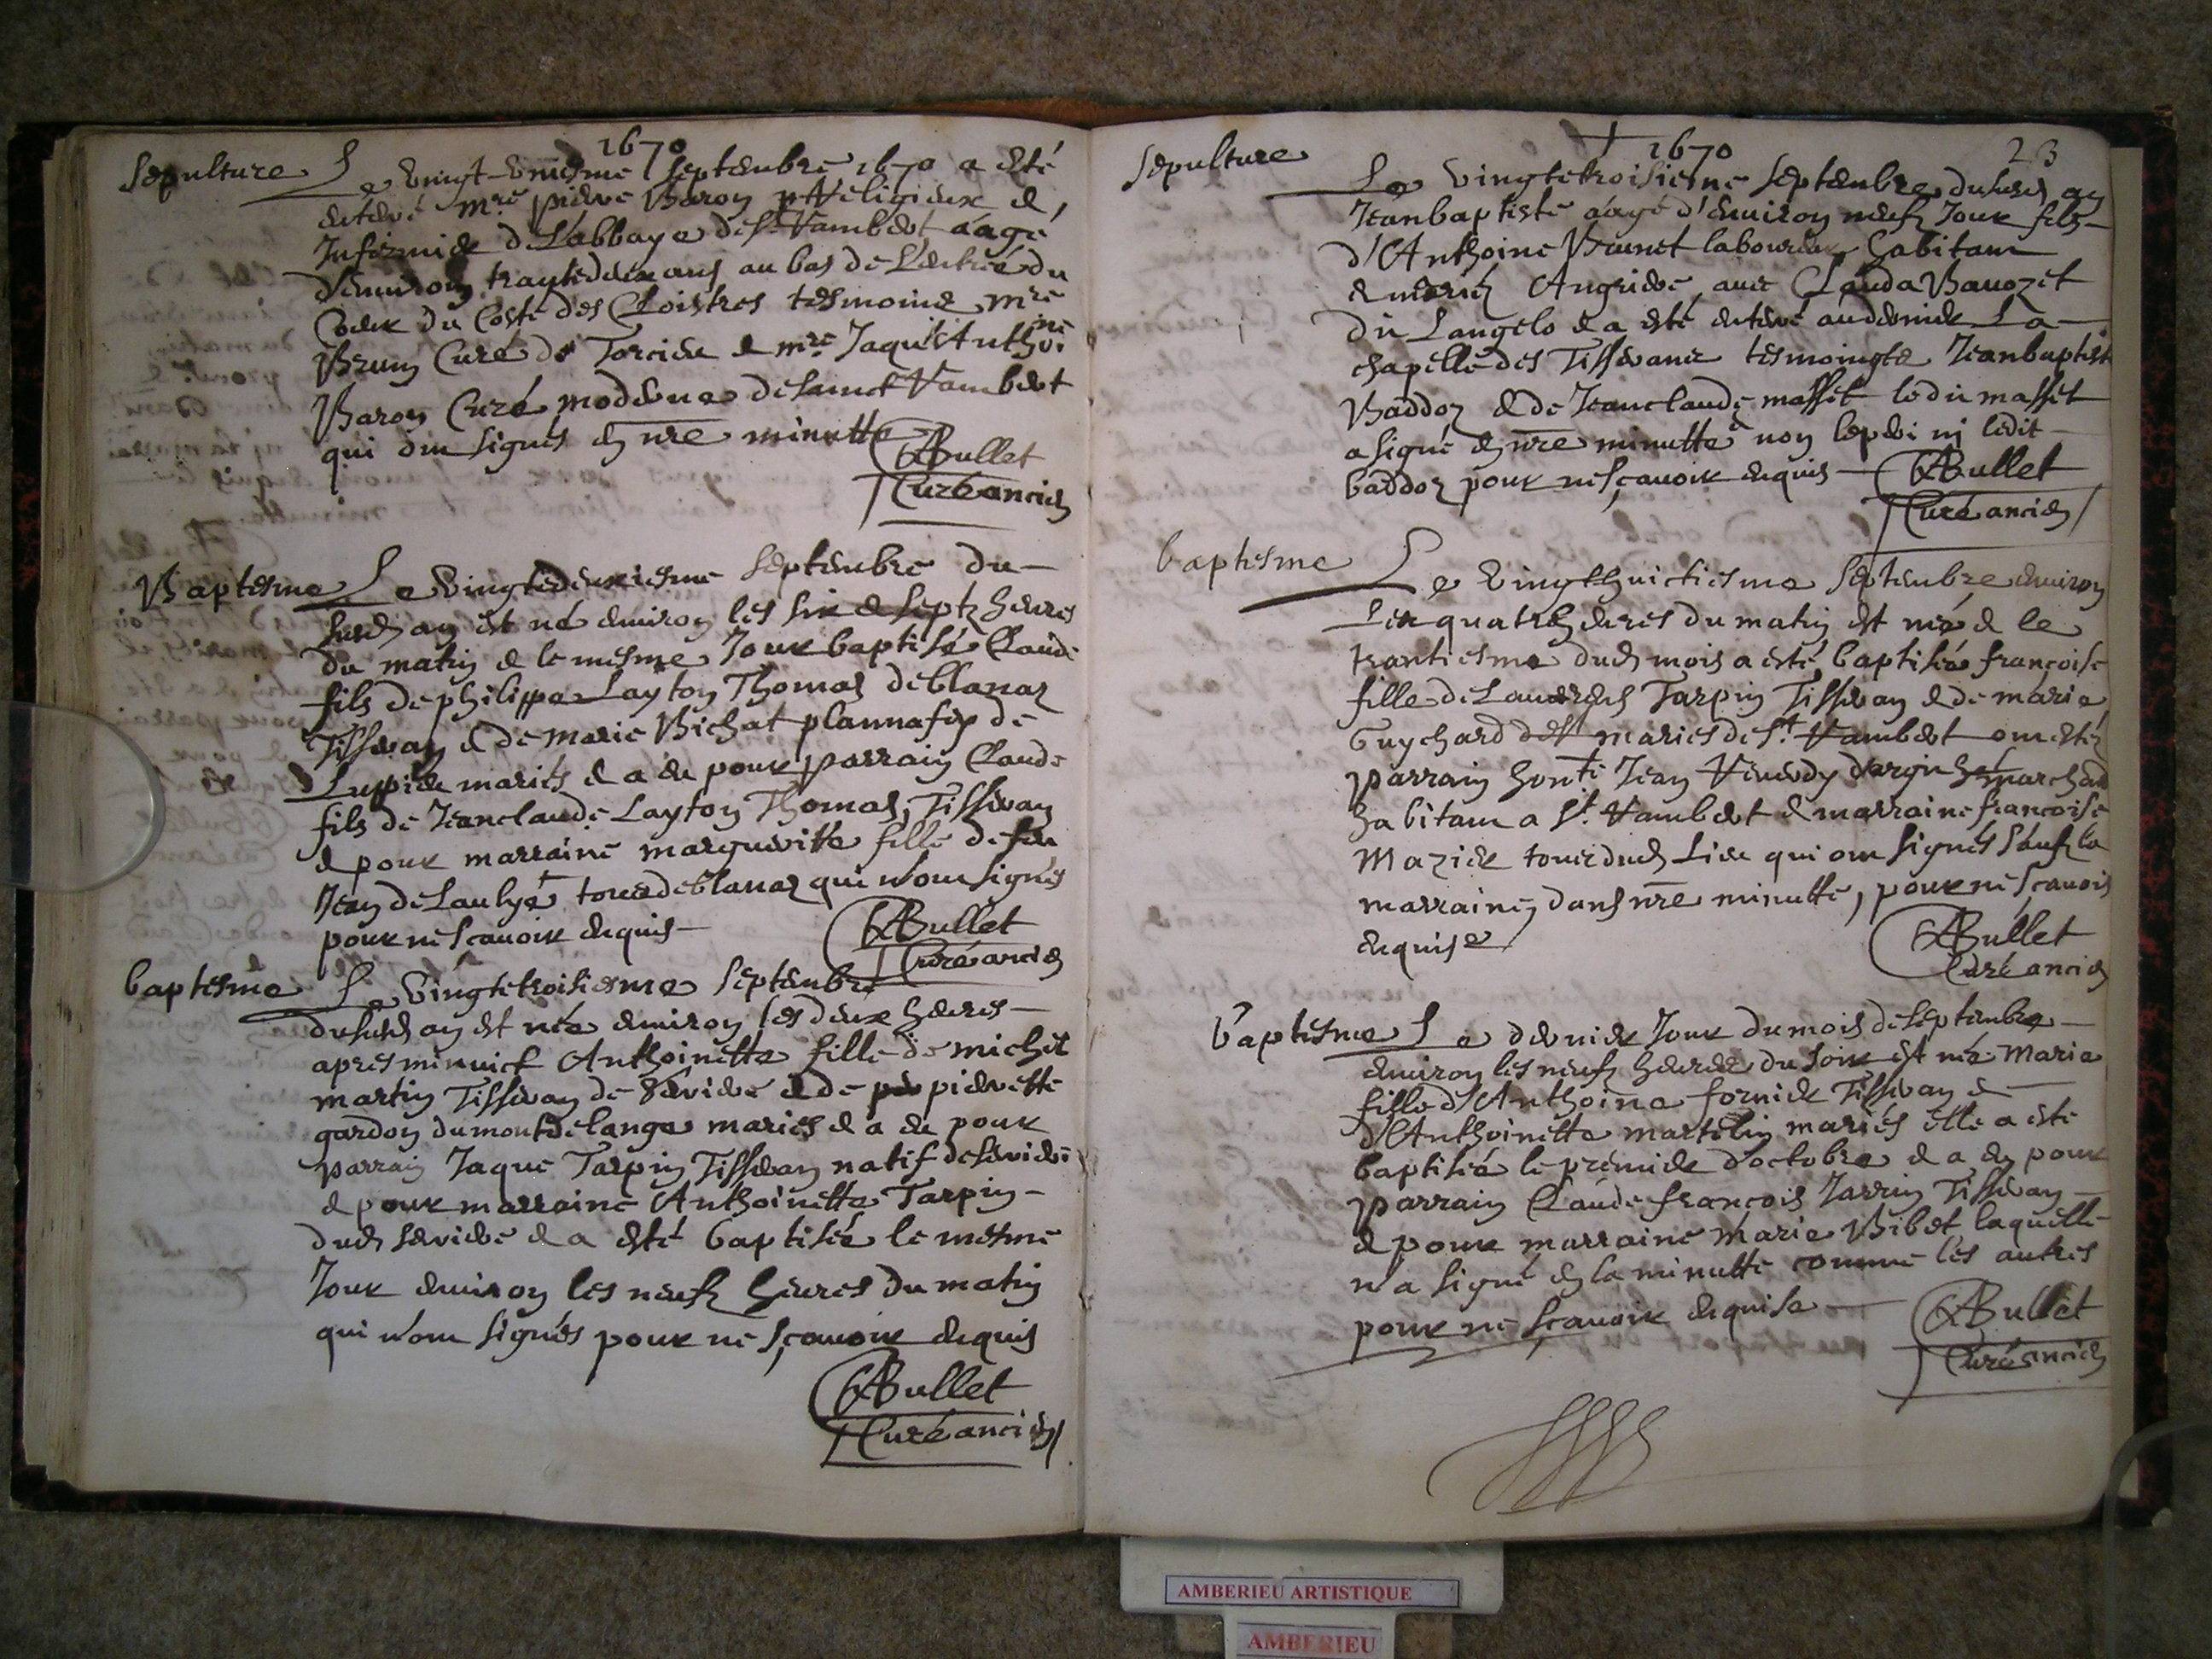 1670
Sepulture Le vingt-uniesme Septembre 1670 a esté
enterré mre pierre Baron ptre Religieux &
Infirmier de Labbaye de St Rambert aagé
denuiron trantedeux ans au bas de Lentrée du
Coeur du Costé des Cloistres tesmoins mre
Brun Curé de Torcieu & mre Jaque Anthoine
Baron Curé moderne de sainct Rambert
qui ont signés en nre minutte
ABullet
Curé ancien
Baptesme Le vingtedeuxiesme Septembre du-
susd an est né enuiron les six & septz heures
du matin & le mesme Jour baptisé Claude
fils de philippe Layton Thomas de blanaz
Tisseran & de marie Bichat plannafox de
Luppieu mariés & a eu pour parrain Claude
fils de Jeanclaude Layton Thomas, Tisseran
& pour marraine margueritte fille de feu
Jean de Laulye tous de blanaz qui n'ont signés
pour ne scauoir enquis
ABullet
Curé ancien
baptesme Le vingtetroisiesme Septembre
dususd an est née enuiron les deux heures
apres minuict Anthoinette fille de michel
martin Tisseran de Serriere & de pierrette
gardon du mont de lange mariés & a eu pour
parrain Jaque Tarpin Tisseran natif de Serriere
& pour marraine Anthoinette Tarpin
dud Serriere & a esté baptisée le mesme
Jour enuiron les neufz heures du matin
qui n'ont signés pour ne scauoir enquis
ABullet
Curé ancien
1670
23
Sepulture Le vingtetroisiesme Septembre dususd an
Jeanbaptiste aagé d'enuiron neufz Jour fils
d'Anthoine Brunet laboureur habitant
en Angriere, auec Clauda Bauozet
du Langelo & a esté enterré au derrier La
chapelle des Tisserans tesmoingts Jeanbaptiste
Baddoz & de Jeanclaude masset ledit masset
a signé en nre minutte non le pere ni ledit
baddoz pour ne scauoir enquis
ABullet
Curé ancien
baptesme Le vingthuictiesme Septembre enuiron
Les quatre heures du matin est née & le
trantiesme dud mois a esté baptisée francoise
fille de Tarpin Tisseran & de marie
Guychard mariés de St Rambert ont estés
parrain honte Jean marchand
habitant a St Rambert & marraine francoise
Mazier tous dud Lieu qui ont signés saufz la
marraine, dans nre minutte, pour ne scauoir
enquise
ABullet
Curé ancien
baptesme Le dernier Jour du mois de septembre
enuiron les neufz heures du soir est née Marie
fille d'Anthoine fornier Tisseran &
d'Anthoinette martelin mariés elle a esté
baptisée le premier d'octobre & a eu pour
parrain Claude francois Jarrin Tisseran
& pour marraine Marie Bibet laquelle
n'a signé en la minutte comme les autres
pour ne scauoir enquise
ABullet
Curé ancien
AMBERIEU ARTISTIQUE
AMBERIEU